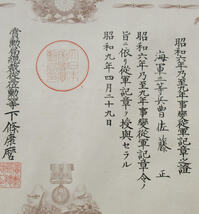 昭和六年乃至九年事變從軍記章之證
海軍三等兵曹佐藤正
昭和六年乃至九年事變從軍記章令ノ
旨ニ依リ從軍記章ヲ授與セラル
昭和九年四月二十九日
賞勳局總裁從三位勳一等下條康麿